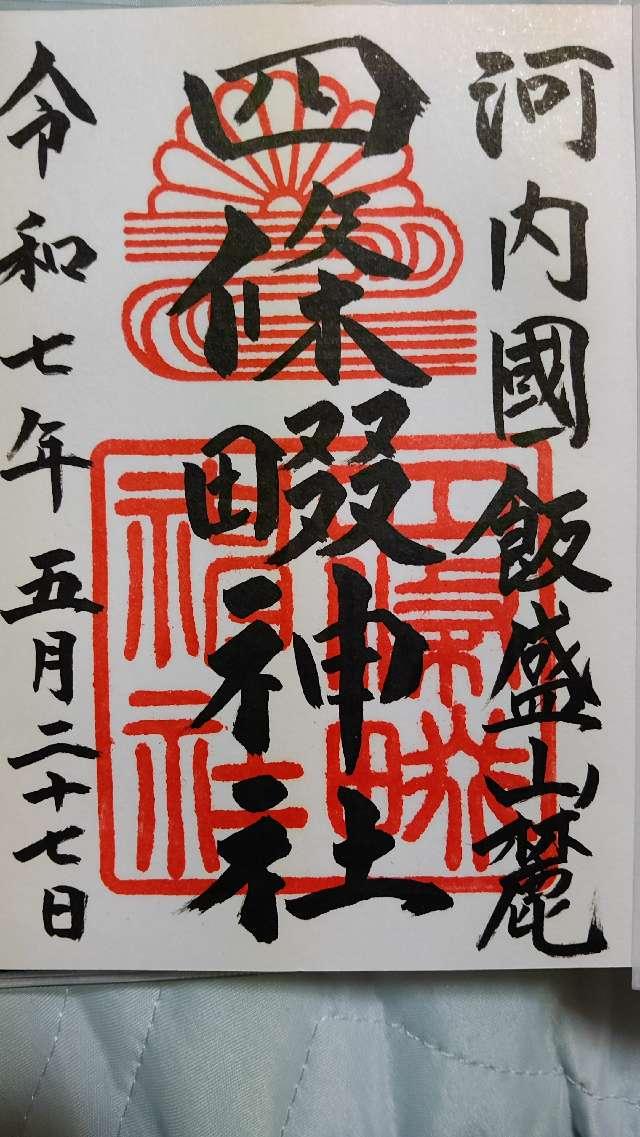 河内國飯盛山麓
四條畷神社
令和七年五月二十七日